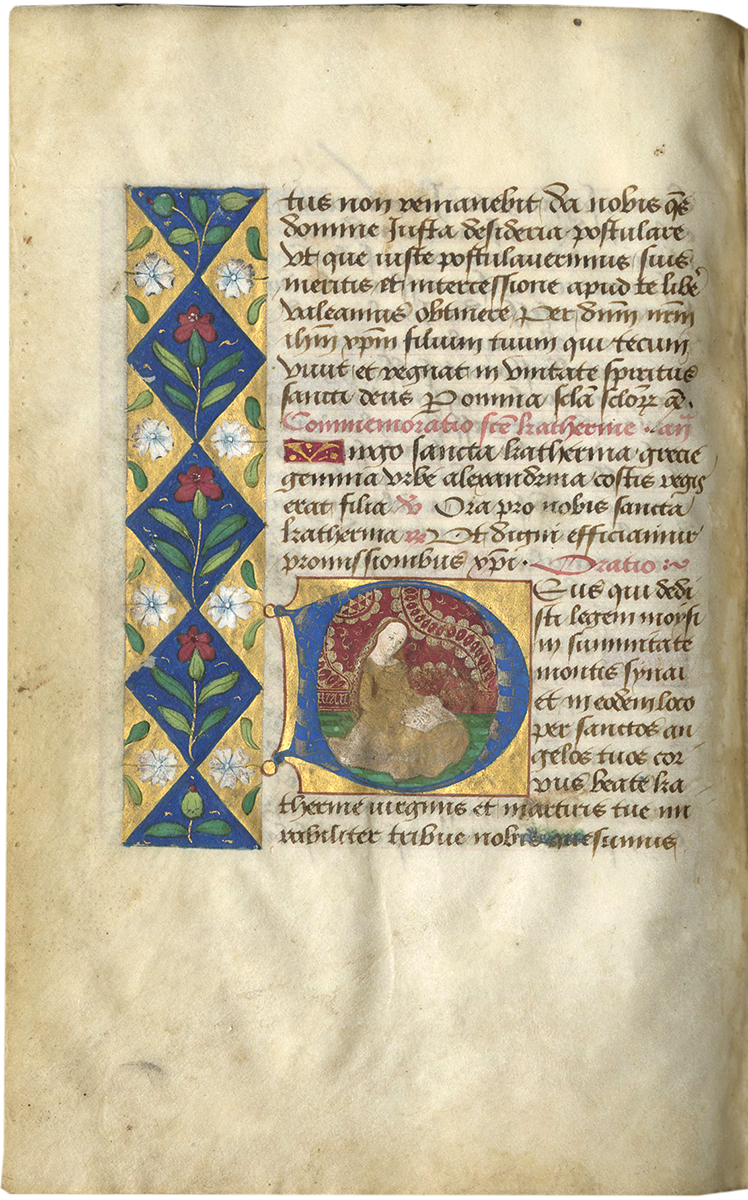 tus non remanebit da nobis qs
domine Justa desideria postulare
vt que iuste postulauerimus suis
meritis et intercessione apud te libe
valeamus obtinere Per dnm nrm
ihm xpm filium tuum qui tecum
viuit et regnat in vnitate spiritus
sancti deus P omnia scla sclorz am
Commemoratio scte katherine an
Virgo sancta katherina grecie
gemma vrbe alexandrina costis regis
erat filia v Ora pro nobis sancta
katherina r Vt digni efficiamur
promissionibus xpi Oratio
DEus qui dedi
sti legem moysi
in summitate
montis synai
et in eodem loco
per sanctos an
gelos tuos cor
pus beate ka
therine virginis et martiris tue mi
rabiliter tribue nobis quesumus